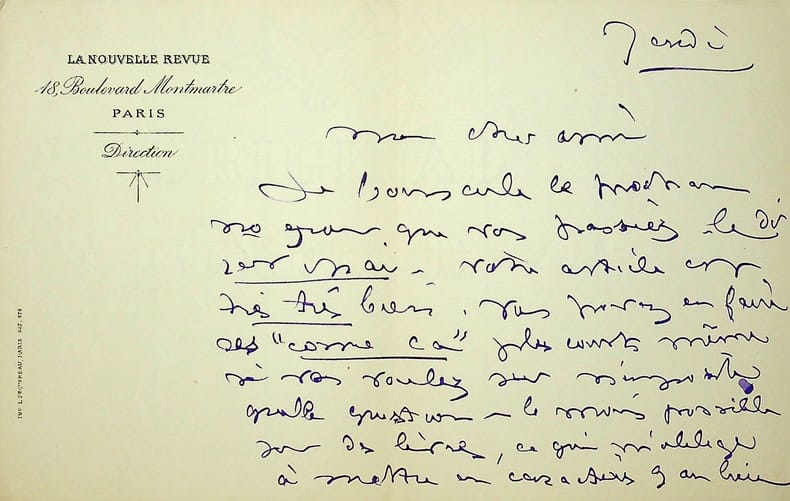 LA NOUVELLE REVUE
18, Boulevard Montmartre
PARIS
Direction
mon cher ami
Je bouscule le prochain
no pour que vos passiez le
vrai - votre article est
très très bien. vous pouvez en faire
des "comme ça" plus courts même
si vous voulez sur n'importe
quelle question - le moins possible
sur des livres, ce qui m'oblige
à mettre en caractères 9 au lieu